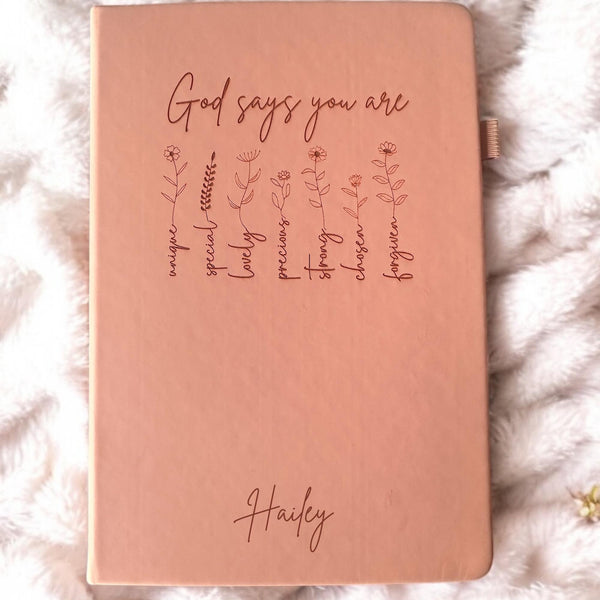 God says you are
unique
special
lovely
precious
strong
chosen
forgiven
Hailey